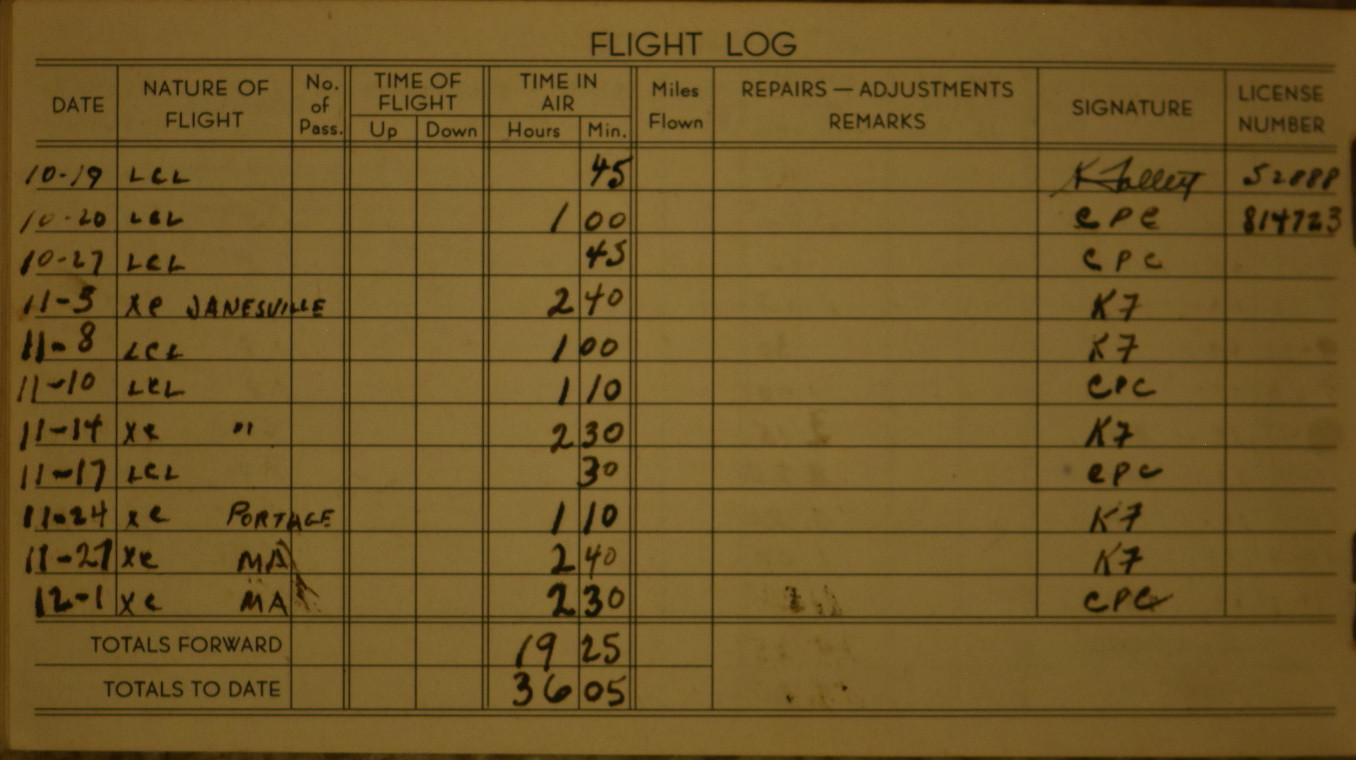 FLIGHT LOG
DATE NATURE OF FLIGHT No. of Pass. TIME OF FLIGHT Up Down TIME IN AIR Hours Min. Miles Flown REPAIRS — ADJUSTMENTS REMARKS SIGNATURE LICENSE NUMBER
10-19 LCL 45
10-20 LCL 1 00 CPC 814723
10-27 LCL 45 CPC
11-3 XC JANESVILLE 2 40 K7
11-8 LCL 1 00 K7
11-10 LCL 1 10 CPC
11-14 XC " 2 30 K7
11-17 LCL 30 CPC
11-24 XC PORTAGE 1 10 K7
11-27 XC MA 2 40 K7
12-1 XC MA 2 30 CPC
TOTALS FORWARD 19 25
TOTALS TO DATE 36 05